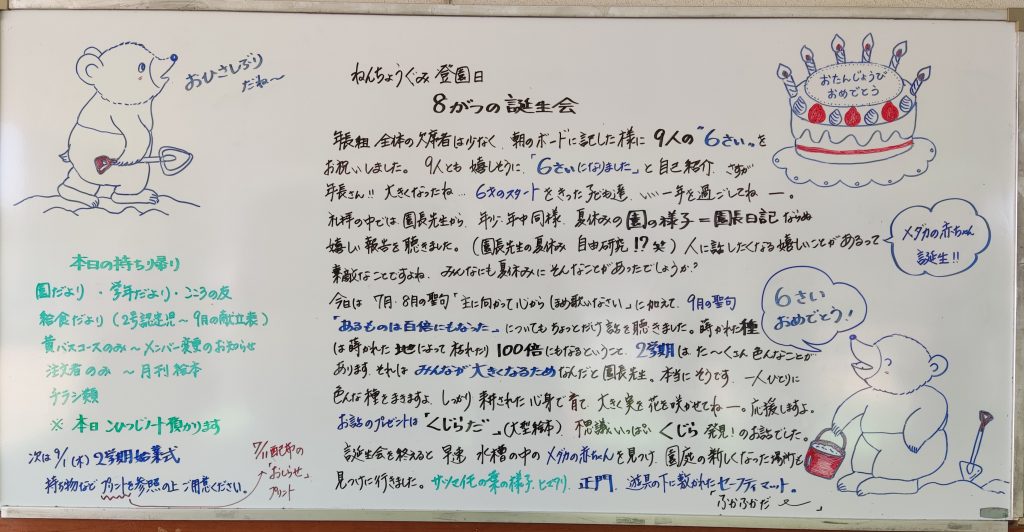 おひさしぶり
だね～
ねんちょうぐみ 登園日
8がつの誕生会
年長組 全体の欠席者は少なく、朝のボードに記した様に 9人の"6さい"を
お祝いしました。 9人とも 嬉しそうに、「6さいになりました」と自己紹介。さすが
年長さん!! 大きくなったね… 6才のスタートをきった子ども達、いい一年を過ごしてねー。
礼拝の中では、園長先生から、年少・年中同様、夏休みの園の様子＝園長日記ならぬ
嬉しい報告を聴きました。(園長先生の夏休み 自由研究!? 笑) 人に話したくなる嬉しいことがあるって
素敵なことですよね。みんなにも夏休みにそんなことがあったでしょうか?
今日は 7月・8月の聖句「主に向かって心からほめ歌いなさい」に加えて、9月の聖句
「あるものは百倍にもなった」についてもちょっとだけ話を聴きました。蒔かれた種
は蒔かれた 地によって枯れたり 100倍にもなるということ、2学期は、た～くさん色んなことが
あります。それは みんなが大きくなるためなんだと園長先生。本当にそうです。一人ひとりに
色んな種をまきますよ。しっかり 耕された心身で育て、大きく実を花を咲かせてねー。応援しますよ。
お話のプレゼントは「くじらだ」(大型絵本)。不思議いっぱい くじら発見!のお話でした。
誕生会を終えると 早速 水槽の中の メダカの赤ちゃんを見つけ、園庭の新しくなった場所も
見つけに行きました。サツマイモの葉の様子、ヒマワリ、正門、遊具の下に敷かれたセーフティマット。
ふかふかだ～
おたんじょうび
おめでとう
メダカの赤ちゃん
誕生!!
6さい
おめでとう!
本日の持ち帰り
園だより ・学年だより・こころの友
給食だより (2号認定児～9月の献立表)
黄バスコースのみ～メンバー変更のお知らせ
注文者のみ ～月刊絵本
チラシ類
※ 本日 こひつじノート預かります
次は 9/1(木) 2学期始業式
持ち物など プリントを参照の上 ご用意ください。
7/11配布の
「おしらせ」
プリント